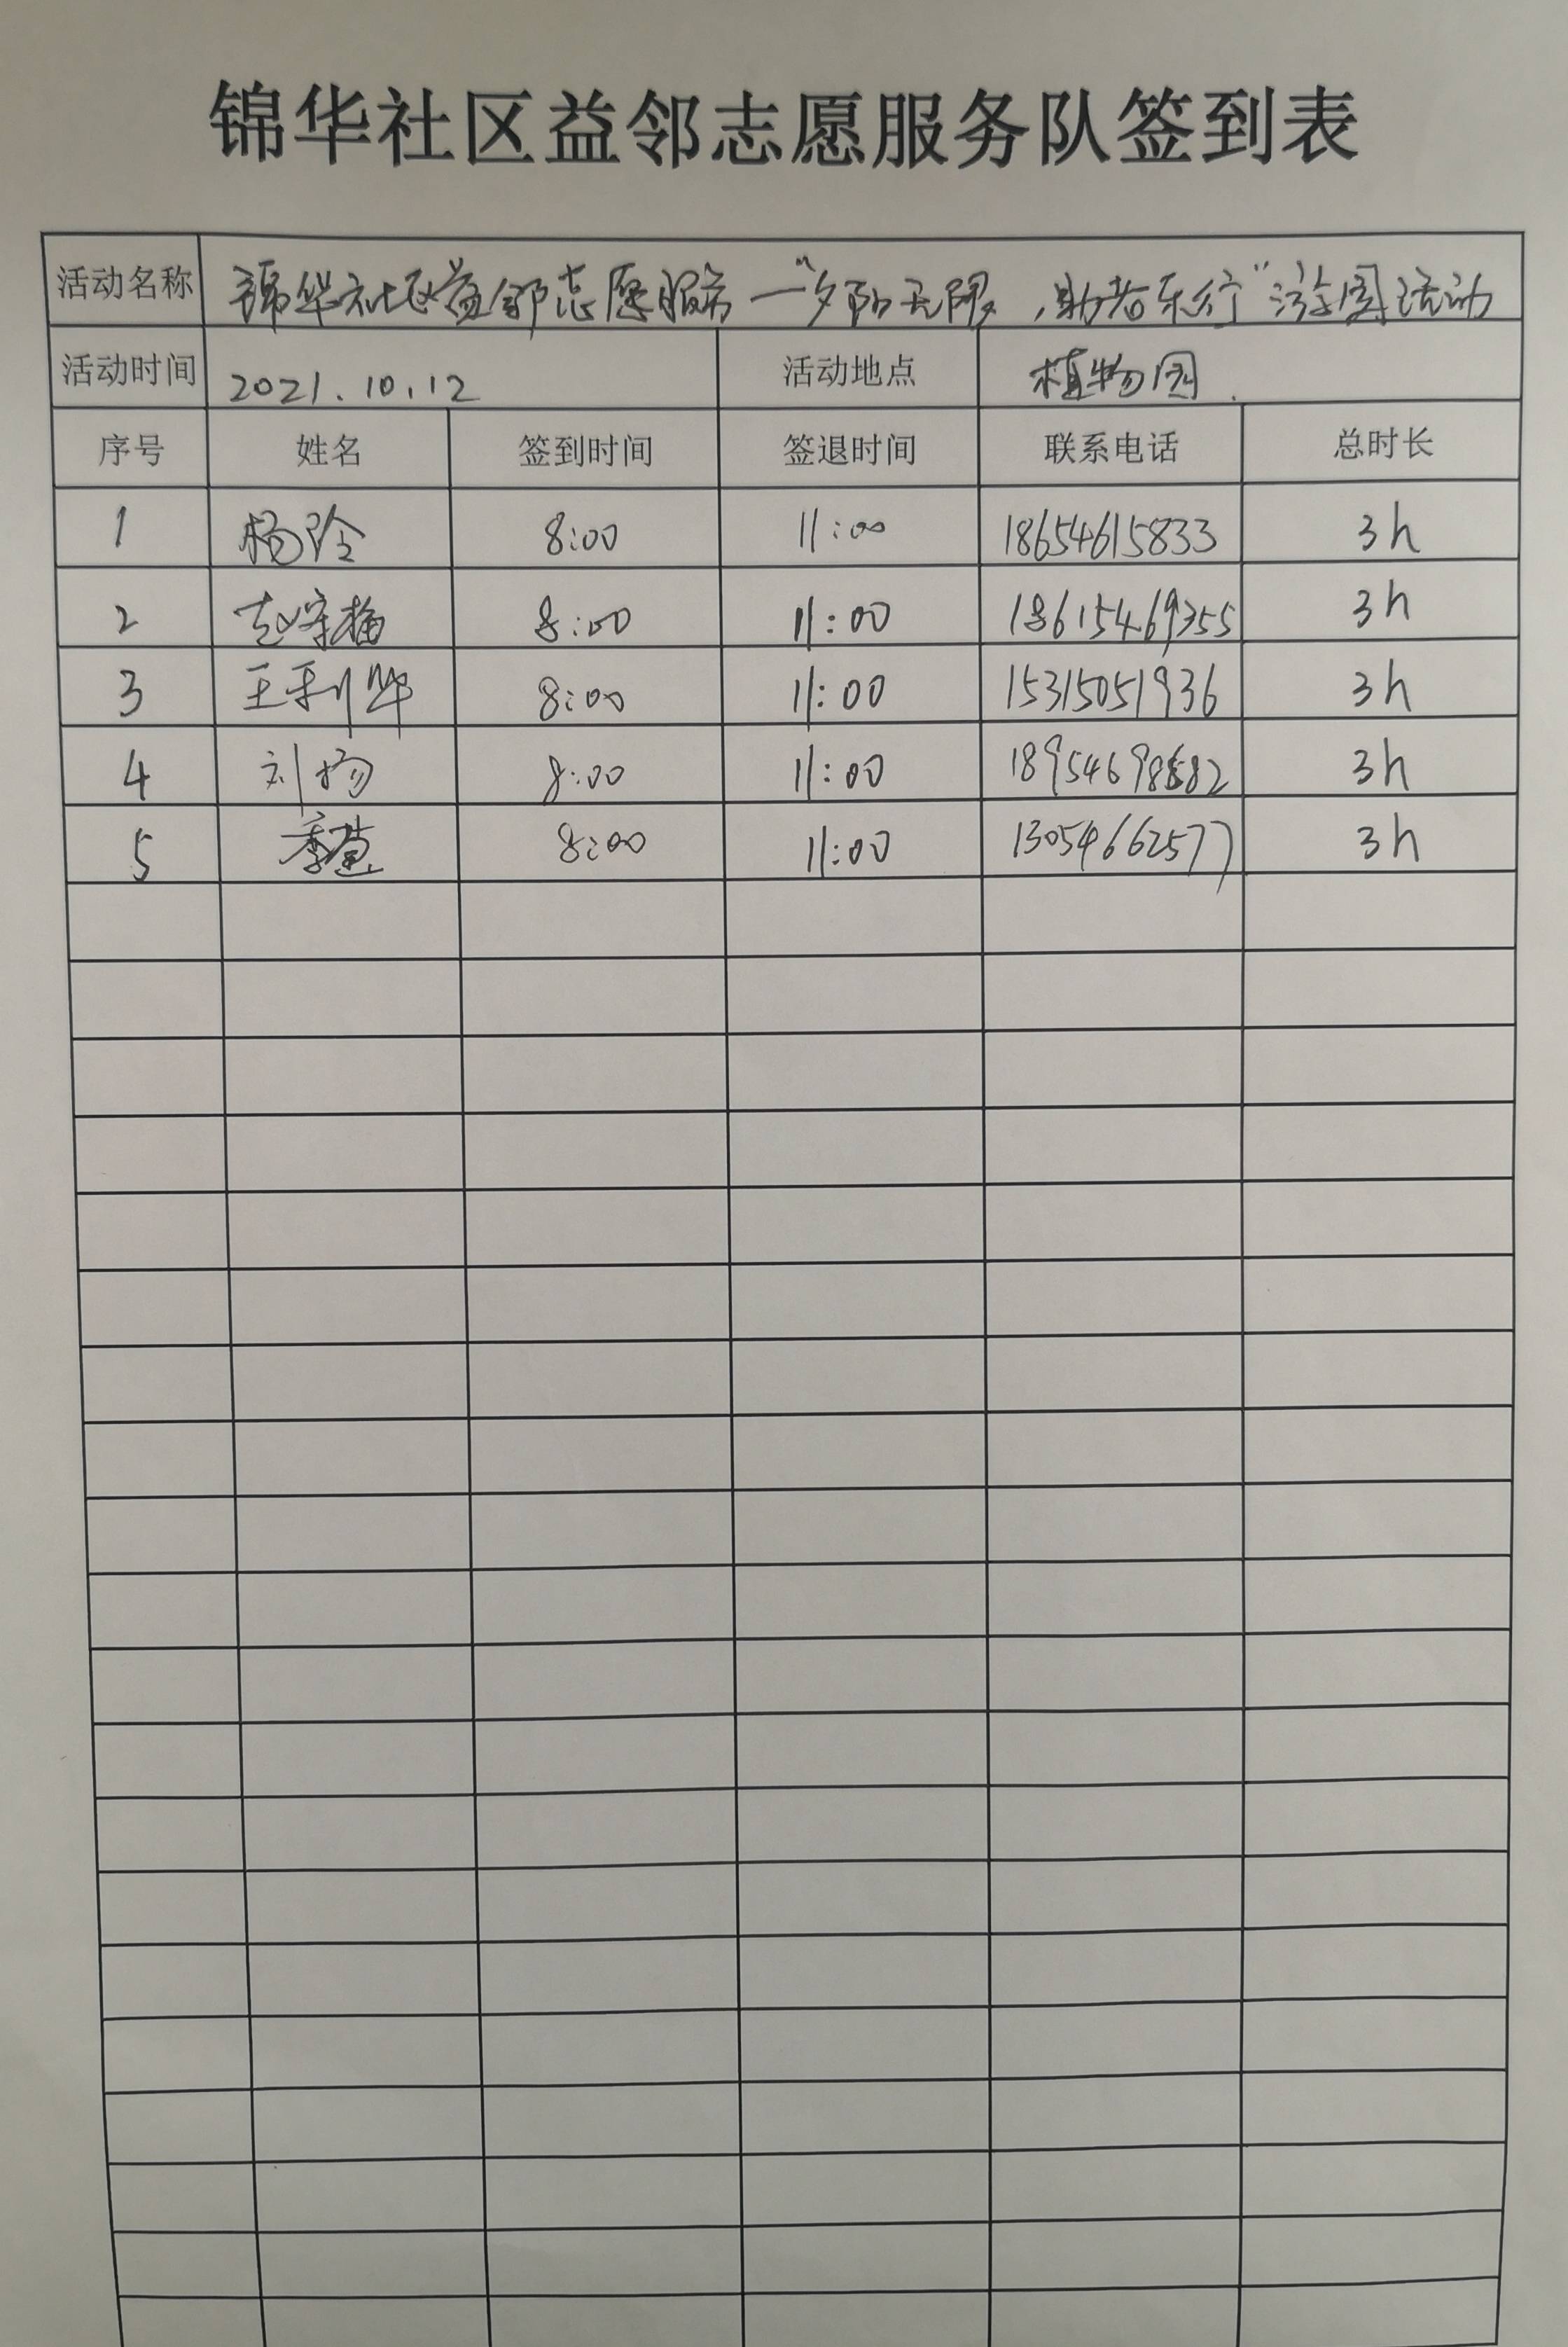 锦华社区益邻志愿服务队签到表
活动名称 锦华社区益邻志愿服务一"夕阳无限，助老乐行"游园活动
活动时间 2021.10.12 活动地点 植物园
序号 姓名 签到时间 签退时间 联系电话 总时长
1 杨玲 8:00 11:00 18654615833 3h
2 赵守梅 8:00 11:00 18615469355 3h
3 王利华 8:00 11:00 15315051936 3h
4 刘杨 8:00 11:00 3h
5 季 8:00 11:00 13054662577 3h